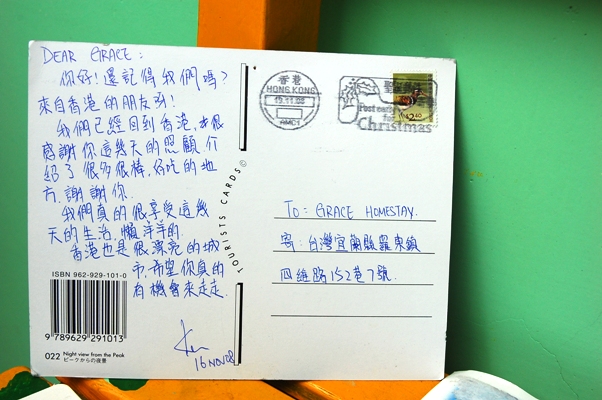 DEAR GRACE:
你好!還記得我們嗎?
來自香港的朋友ㄚ!
我們已經回到香港,很
感謝你這幾天的照顧介
紹了很多很棒,好吃的地
方.謝謝你.
我們真的很享受這幾
天的生活,懶洋洋的.
香港也是很漂亮的城
市,希望你真的
有機會來走走.
16 NOV 08
ISBN 962-929-101-0
9 789629 291013
022 Night view from the Peak
ピークからの夜景
TOURISTS CARDS ©
香港
HONG KONG
Post early
for
Christmas
TO: GRACE HOMESTAY.
寄:台灣宜蘭縣羅東鎮
四維路152巷7號.